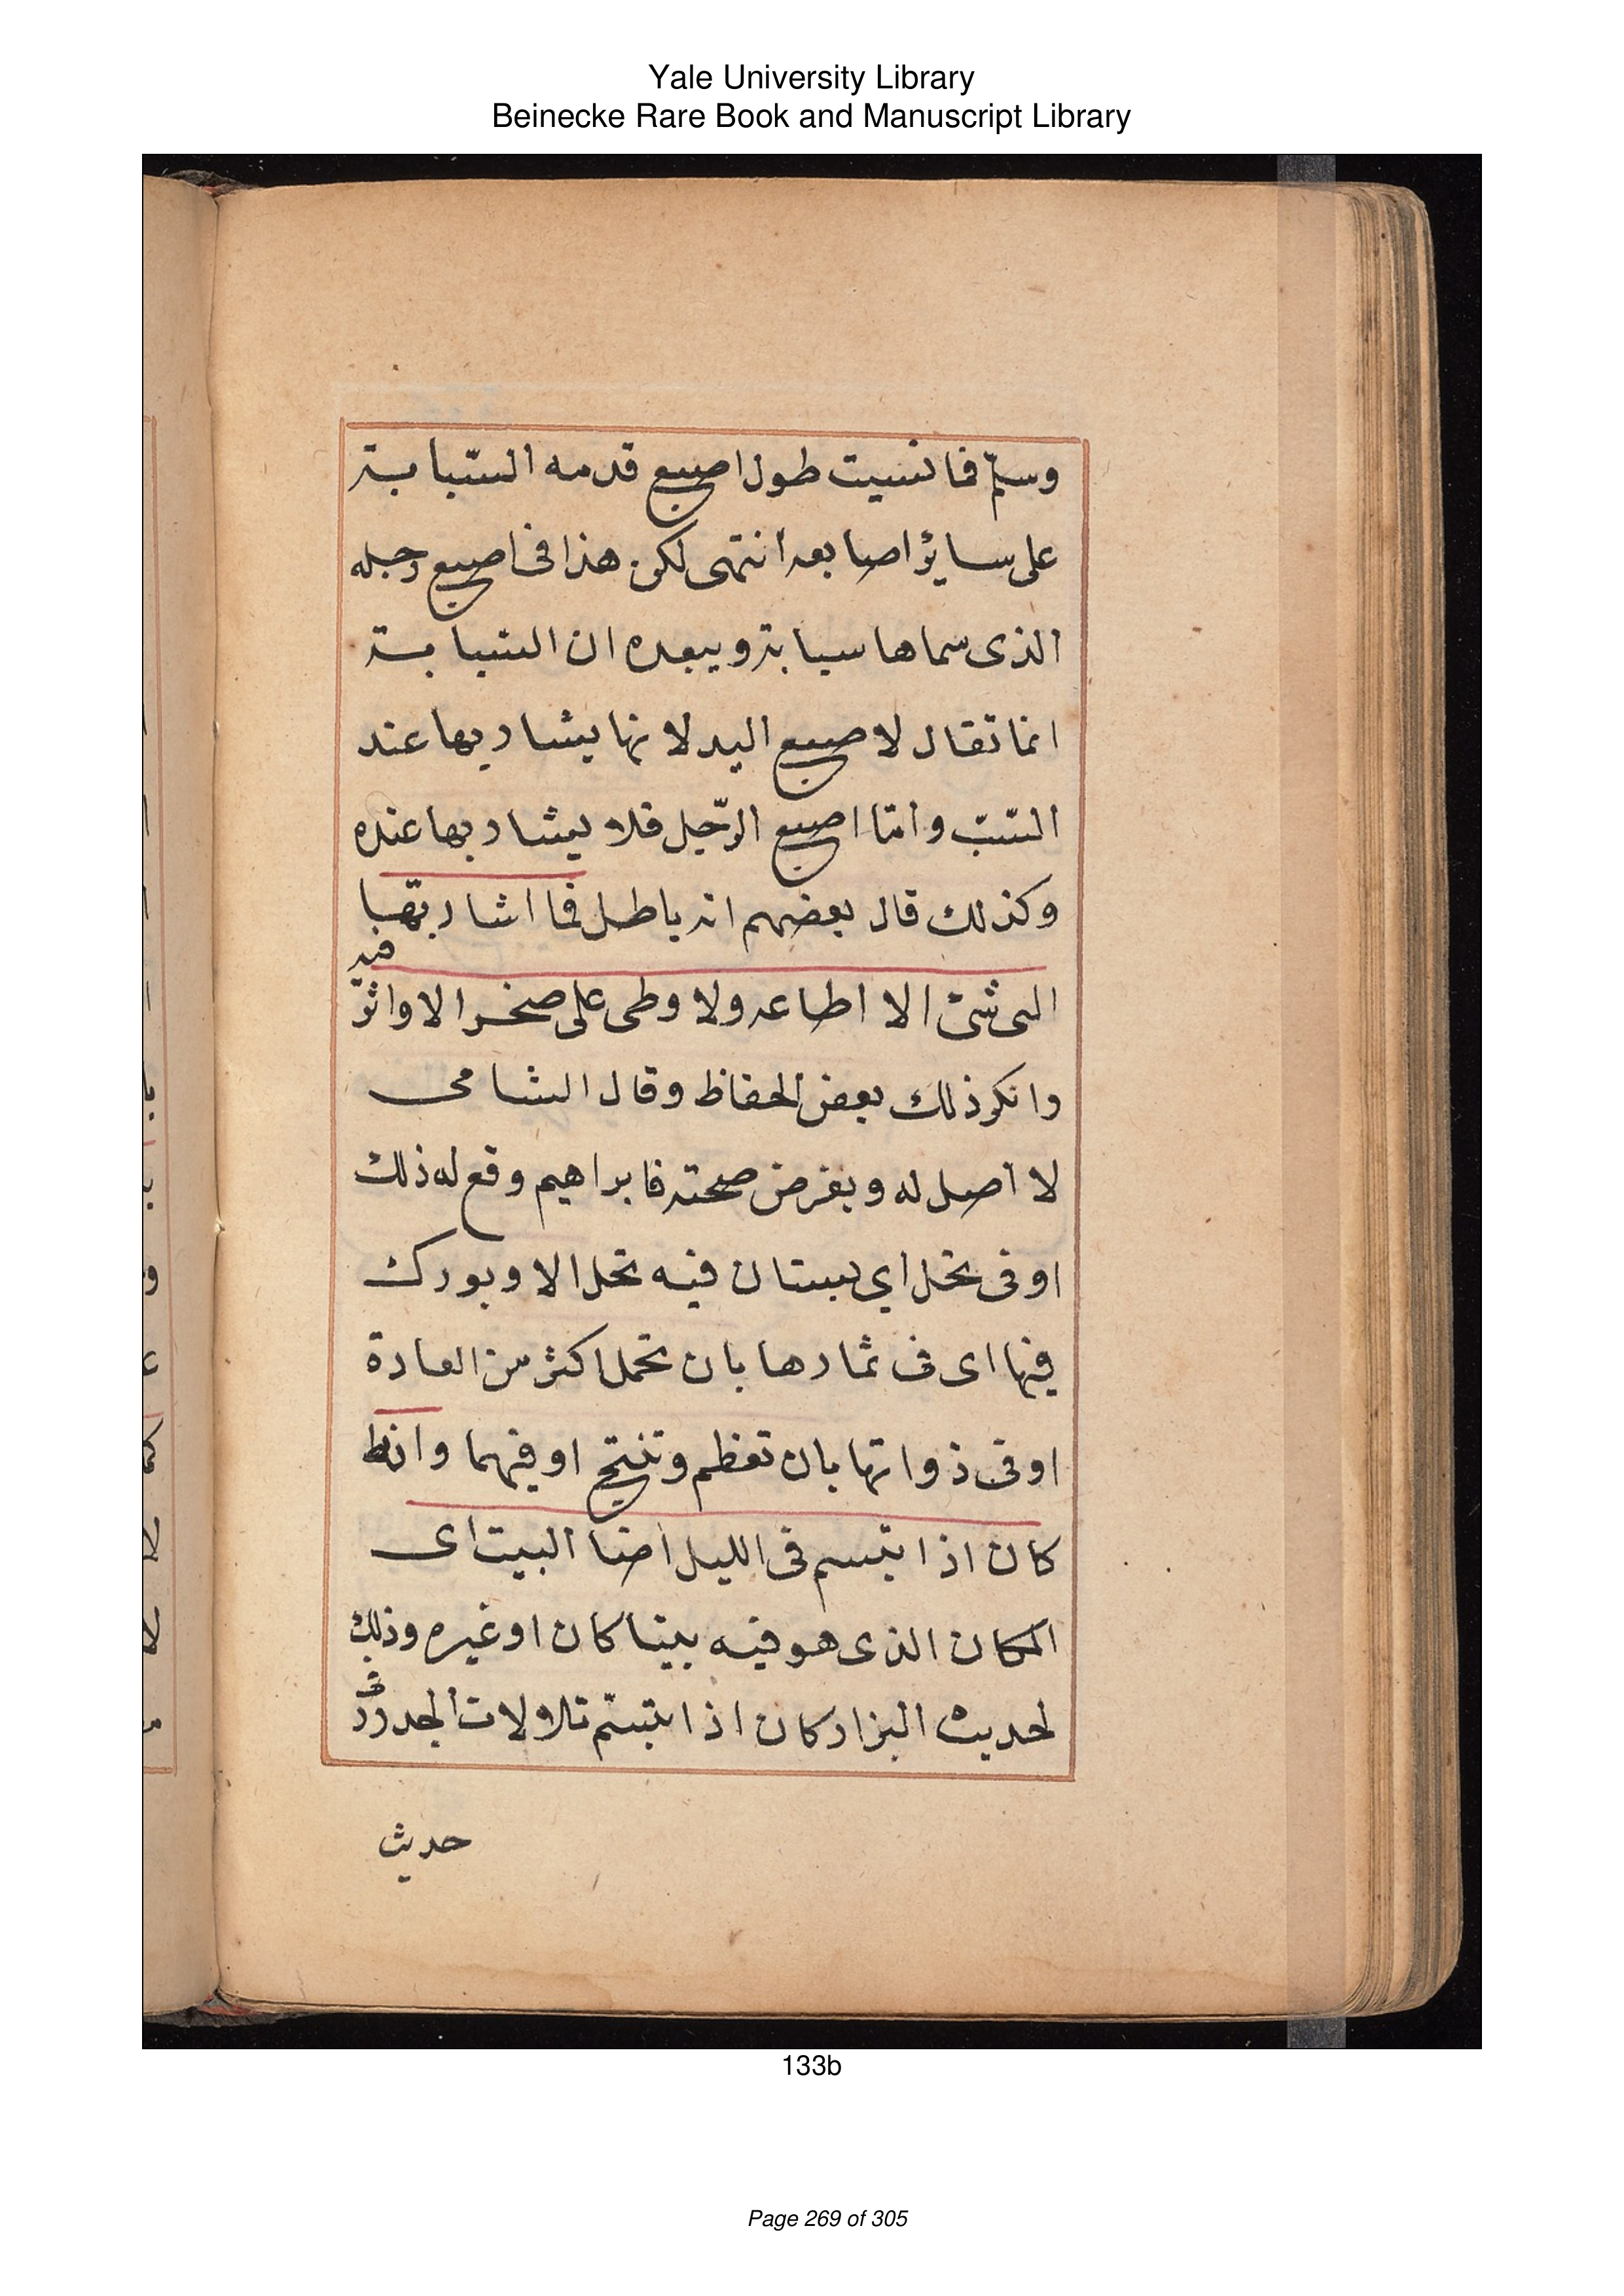 Yale University Library
Beinecke Rare Book and Manuscript Library
وسلم فما نسيت طول اصبع قدمه السّبابة
على سائر اصابعه انتهى لكن هذا فى اصبع رجله
الذى سماها سبابة ويبعده ان السبابة
انما تقال لاصبع اليد لانها يشار بها عند
السّبّ وامّا اصبع الرّجل فلا يشار بها عنده
وكذلك قال بعضهم انه باطل فما اشار بهّا
الى شئ الا اطاعه ولا وطى على صخر الا واثّر
فيه
وانكر ذلك بعض الحفاظ وقال الشامى
لا اصل له وبفرض صحته فابراهيم وقع له ذلك
اوفى نخل اي بستان فيه نخل الا وبورك
فيها اى فى ثمارها بان تحمل اكثر من العادة
اوفى ذواتها بان تعظم وتنتج اوفيهما وانه
كان اذا ابتسم فى الليل اضا البيت اى
المكان الذى هو فيه بيتا كان اوغيره وذلك
لحديث البزار كان اذا ابتسم تلالات الجدر وفى
حديث
133b
Page 269 of 305